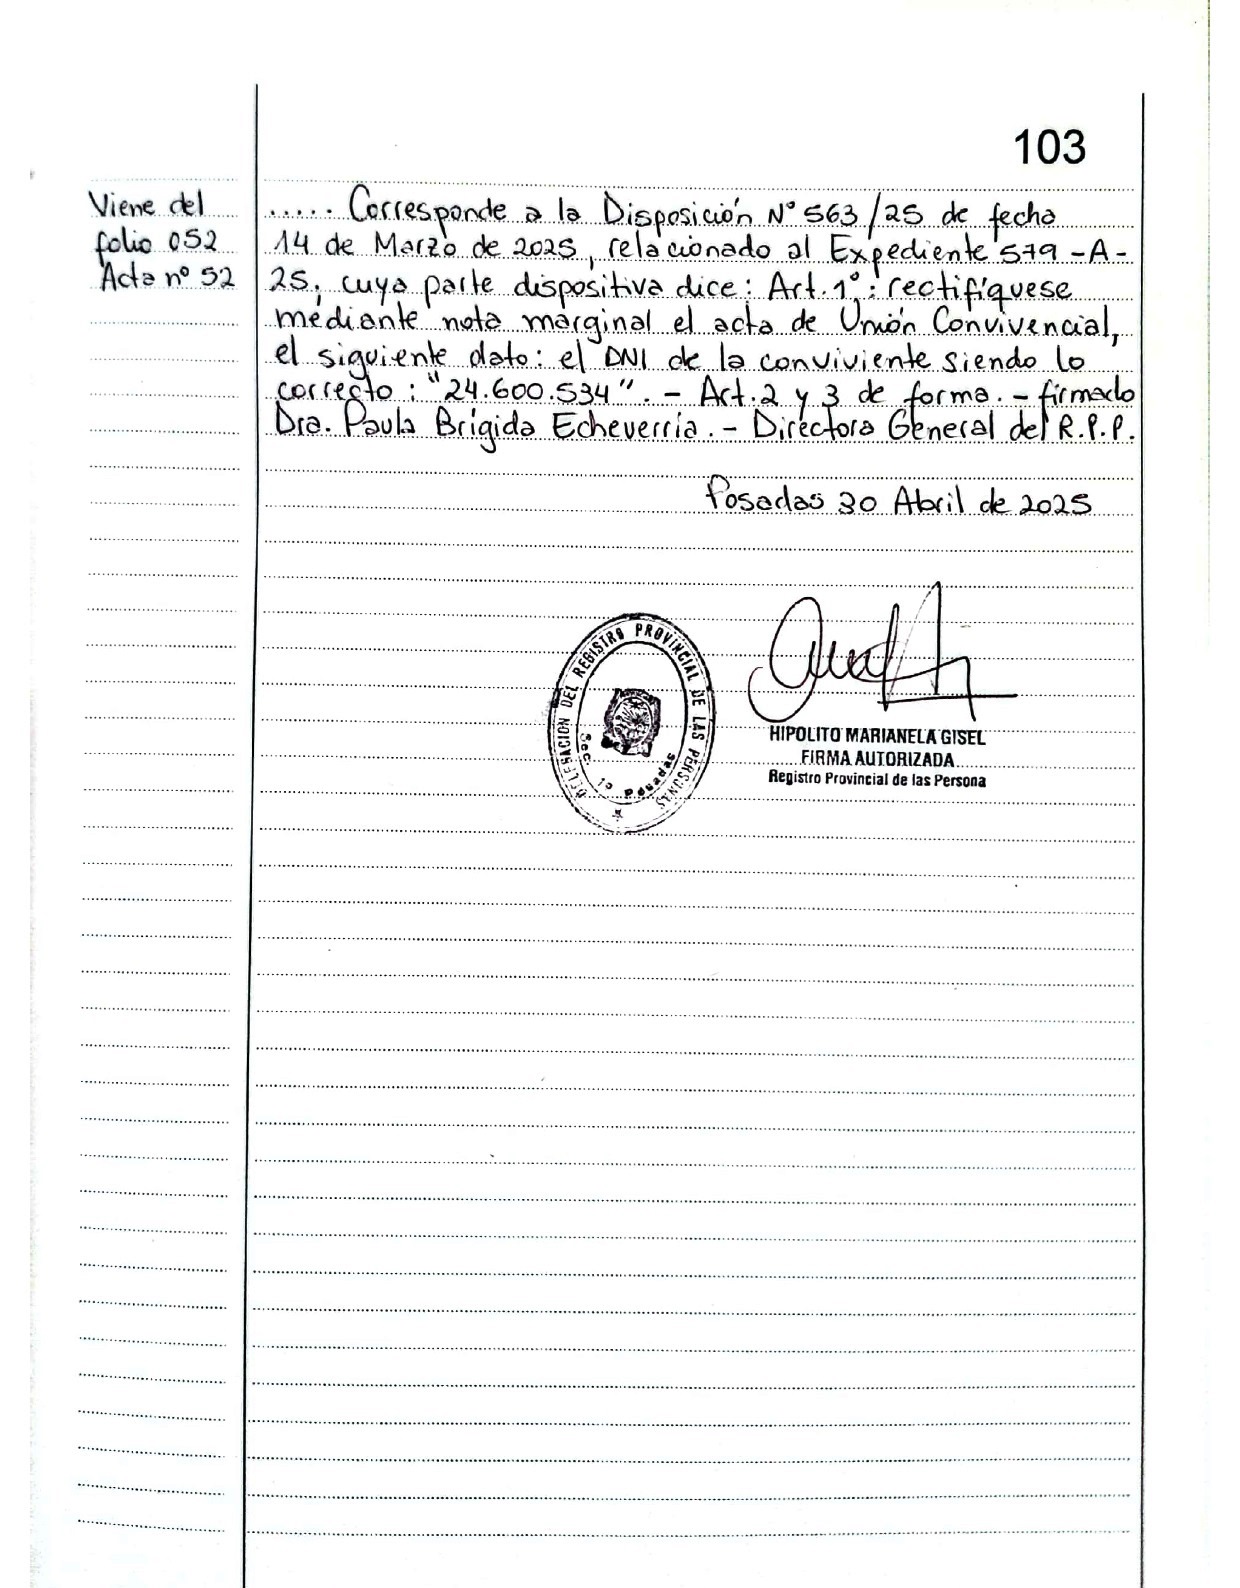 103
Viene del
folio 052
Acta nº 52
..... Corresponde a la Disposición Nº 563/25 de fecha
14 de Marzo de 2025, relacionado al Expediente 579 -A-
25, cuya parte dispositiva dice: Art. 1º: rectifíquese
mediante nota marginal el acta de Unión Convivencial,
el siguiente dato: el DNI de la conviviente siendo lo
correcto: "24.600.534". - Art. 2 y 3 de forma. - firmado
Dra. Paula Brígida Echeverría. - Directora General del R.P.P.
Posadas 30 Abril de 2025
DELEGACION DEL REGISTRO PROVINCIAL DE LAS PERSONAS
Sec. 1ª Posadas
HIPOLITO MARIANELA GISEL
FIRMA AUTORIZADA
Registro Provincial de las Persona